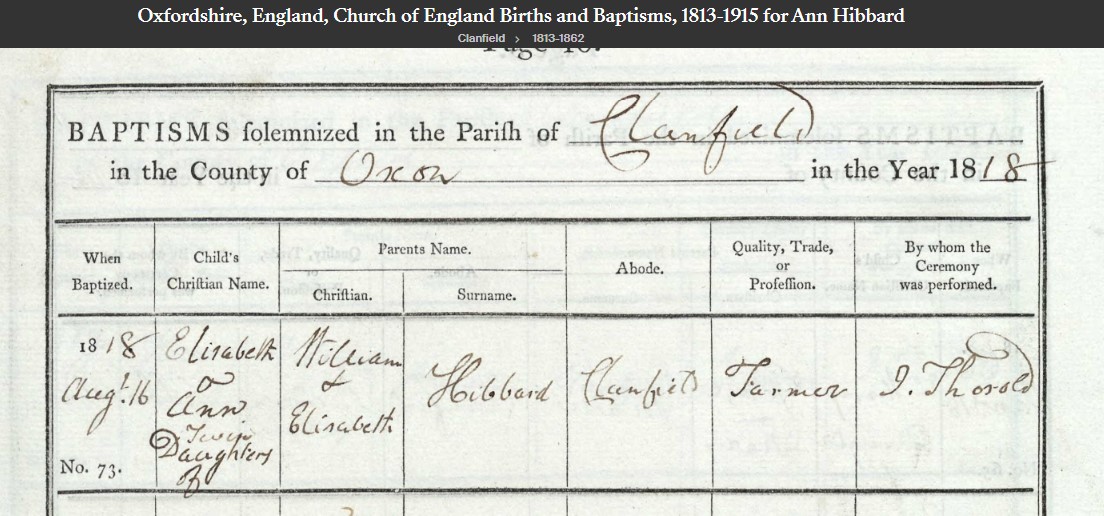 Oxfordshire, England, Church of England Births and Baptisms, 1813-1915 for Ann Hibbard
Clanfield > 1813-1862
Page 10.
BAPTISMS ſolemnized in the Pariſh of Clanfield
in the County of Oxon in the Year 1818
When Baptized.
Child's Chriſtian Name.
Parents Name.
Chriſtian.
Surname.
Abode.
Quality, Trade, or Profeſſion.
By whom the Ceremony was performed.
1818
Augt. 16
No. 73.
Elisabeth
&
Ann
Twin
Daughters
of
William
&
Elisabeth
Hibbard
Clanfield
Farmer
J. Thorold